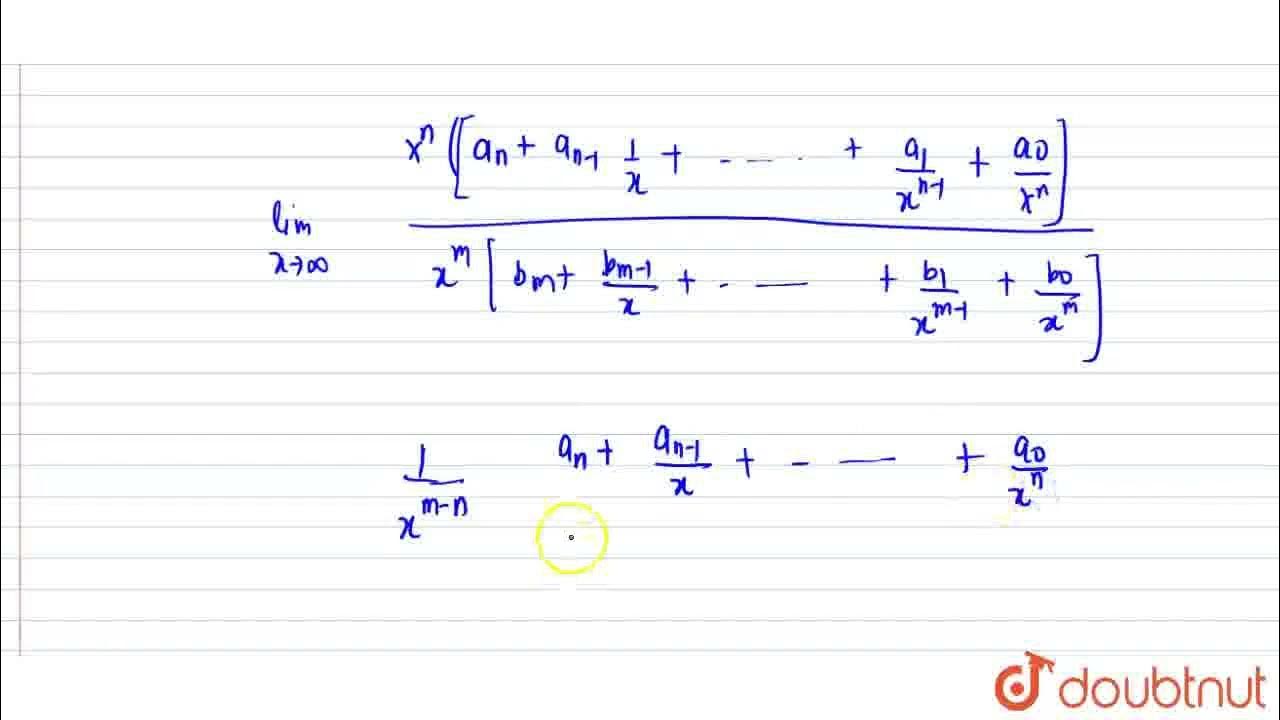 lim x→∞ xⁿ ([aₙ + aₙ₋₁ 1/x + ----- + a₁/xⁿ⁻¹ + a₀/xⁿ] / xᵐ [bₘ + bₘ₋₁/x + - - — + b₁/xᵐ⁻¹ + b₀/xᵐ]
1/xᵐ⁻ⁿ aₙ + aₙ₋₁/x + - — + a₀/xⁿ
doubtnut